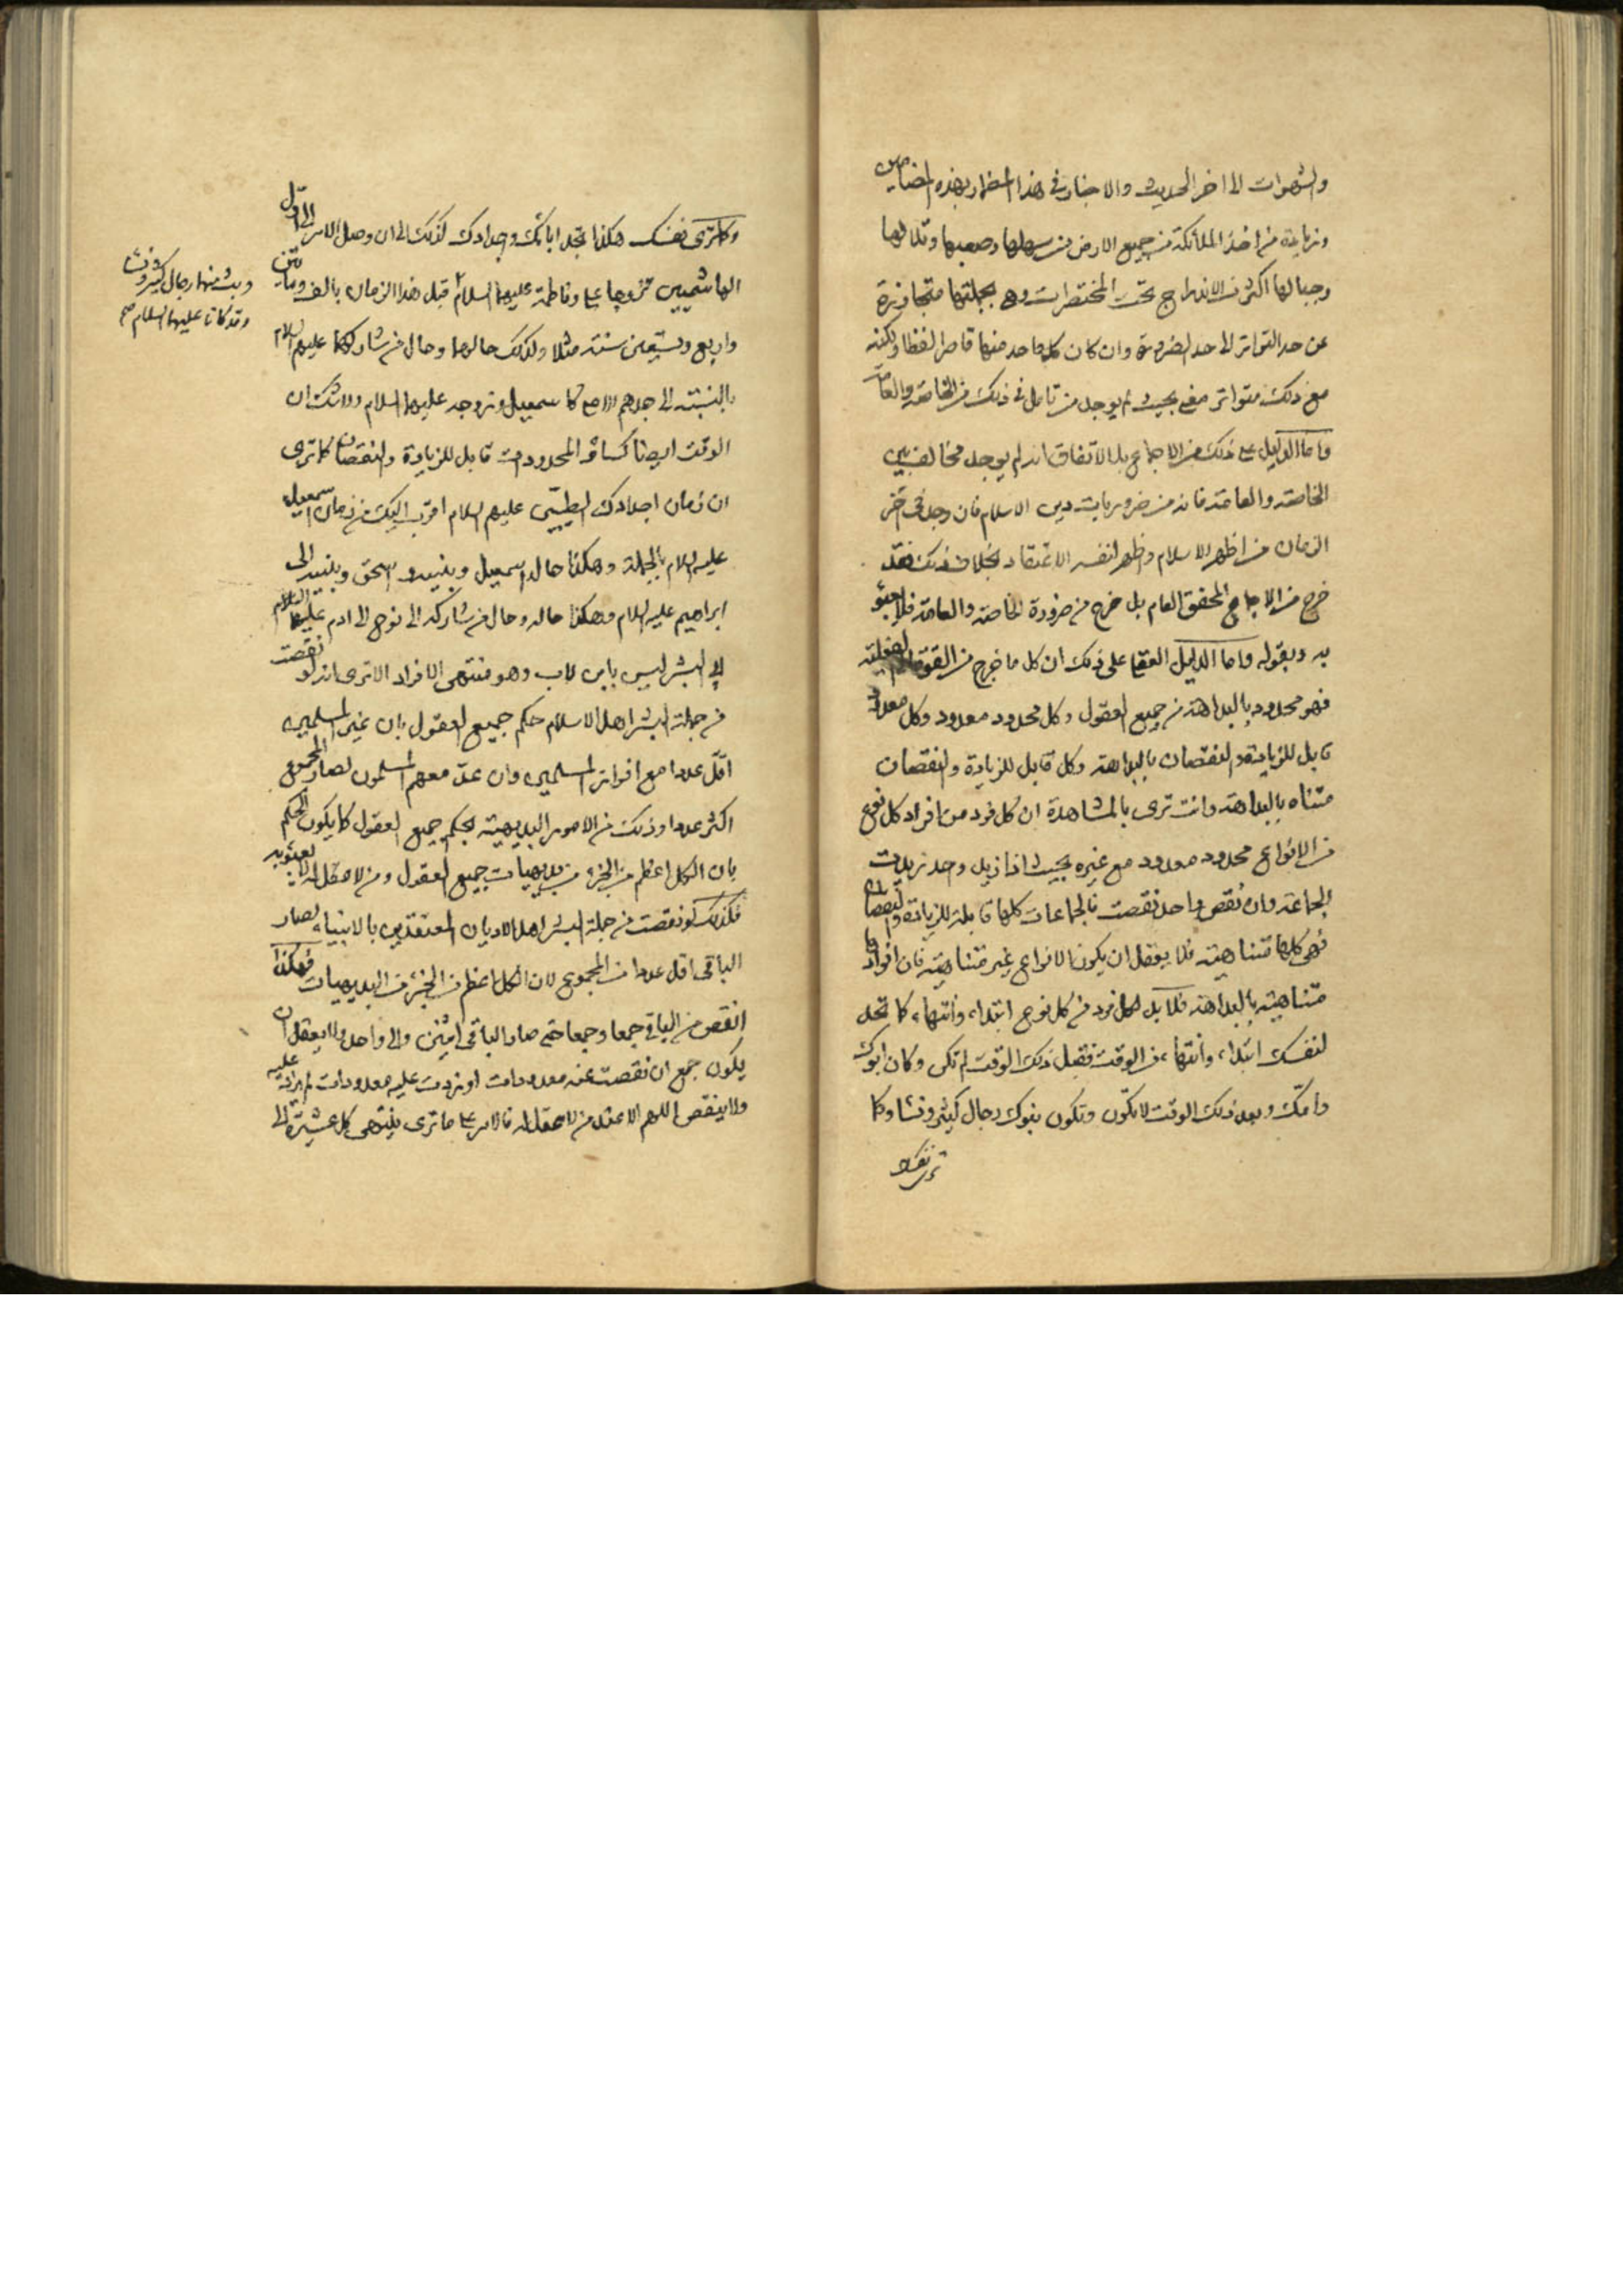 والشهوات الى اخر الحديث والاخبار في هذا المضمار بهذه المضامين
وزيادة من اخذ الملائكة من جميع الارض من سهلها وصعبها وتلالها
وجبالها اكثر من الاندراج تحت المختصرات وهي بجملتها متجاوزة
عن حد التواتر الى حد الضرورة وان كان كل واحد منها قاصر لفظا ولكنه
مع ذلك متواتر معنى بحيث لم يوجد من تامل في ذلك من الخاصة والعامة
واما الدليل على ذلك من الاجماع بل الاتفاق انه لم يوجد مخالف بين
الخاصة والعامة فانه من ضروريات دين الاسلام فان وجد في آخر
الزمان من اظهر الاسلام واظهر لنفسه الاعتقاد بخلاف ذلك فقد
خرج من الاجماع المحقق العام بل خرج من ضرورة الخاصة والعامة فلا يعبؤ
به وبقوله واما الدليل العقلي على ذلك ان كل ما خرج من القوة الى الفعلية
فهو محدود بالبداهة من جميع العقول وكل محدود معدود وكل معدود
قابل للزيادة والنقصان بالبداهة وكل قابل للزيادة والنقصان
متناه بالبداهة وانت ترى بالمشاهدة ان كل فرد من افراد كل نوع
من الانواع محدود معدود مع غيره بحيث اذا زيد واحد زيدت
الجماعة وان نقص واحد نقصت فالجماعات كلها قابلة للزيادة والنقصان
فهي كلها متناهية فلا يعقل ان يكون الانواع غير متناهية فان افرادها
متناهية بالبداهة فلا بد لكل فرد من كل نوع ابتداء وانتهاء كما تجد
لنفسك ابتداء وانتهاء من الوقت فقبل ذلك الوقت لم تكن وكان ابوك
وامك وبعد ذلك الوقت لا تكون وتكون بنوك رجال كثير ونساء وكما
ترى نفسك
وكما ترى نفسك هكذا تجد ابائك واجدادك كذلك الى ان وصل الامر الى اول
الهاشميين تزوجا علي وفاطمة عليهما السلام قبل هذا الزمان بالف ومأتين
واربع وتسعين سنة مثلا وكذلك حالهما وحال من شاركهما عليهم السلام
بالنسبة الى جدهم كاسمعيل وزوجه عليهما السلام ولا شك ان
الوقت ايضا كسائر المحدودات قابل للزيادة والنقصان كما ترى
ان زمان اجدادك الطيبين عليهم السلام اقرب اليك من زمان اسمعيل
عليه السلام بالجملة وهكذا حال اسمعيل وبنيه واسحق وبنيه الى
ابراهيم عليه السلام وهكذا حاله وحال من شاركه الى نوح الى ادم عليهما السلام
ابي البشر ليس بابن لاب وهو منتهى الافراد الا ترى انه لو نقصت
من جملة البشر اهل الاسلام حكم جميع العقول بان غير المسلمين
اقل عددا مع افراز المسلمين وان عد معهم المسلمون لصار المجموع
اكثر عددا وذلك من الامور البديهية بحكم جميع العقول كما يكون الحكم
بان الكل اعظم من الجزء من بديهيات جميع العقول ومن لا عقل له لا يعبؤ به
فكذلك لو نقصت من جملة البشر اهل الاديان المعتقدين بالانبياء لصار
الباقي اقل عددا من المجموع لان الكل اعظم من الجزء من البديهيات فهكذا
انقص من الباقي جمعا وجمعا حتى صار الباقي اثنين والى واحد ولا يعقل ان
يكون جمع ان نقصت عنه معدودات او زدت عليه معدودات لم يزاد عليه
ولا ينقص اللهم الا عند من لا عقل له فالامر على ما ترى ينتهي كل عشيرة الى
وبث منهما رجال كثير ونساء
وقد كانا عليهما السلام صح